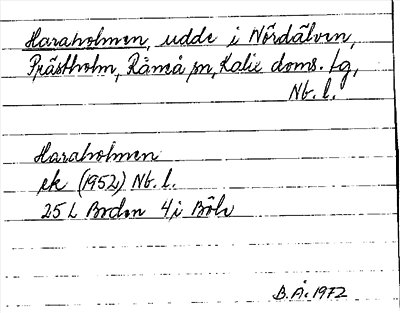 Haraholmen, udde i Nördälven,
Prästholm, Råneå sn, Kalix doms. tg,
Nb. l.
Haraholmen
ek (1952) Nb. l.
25 L Boden 4 i Böle
B. Å. 1972